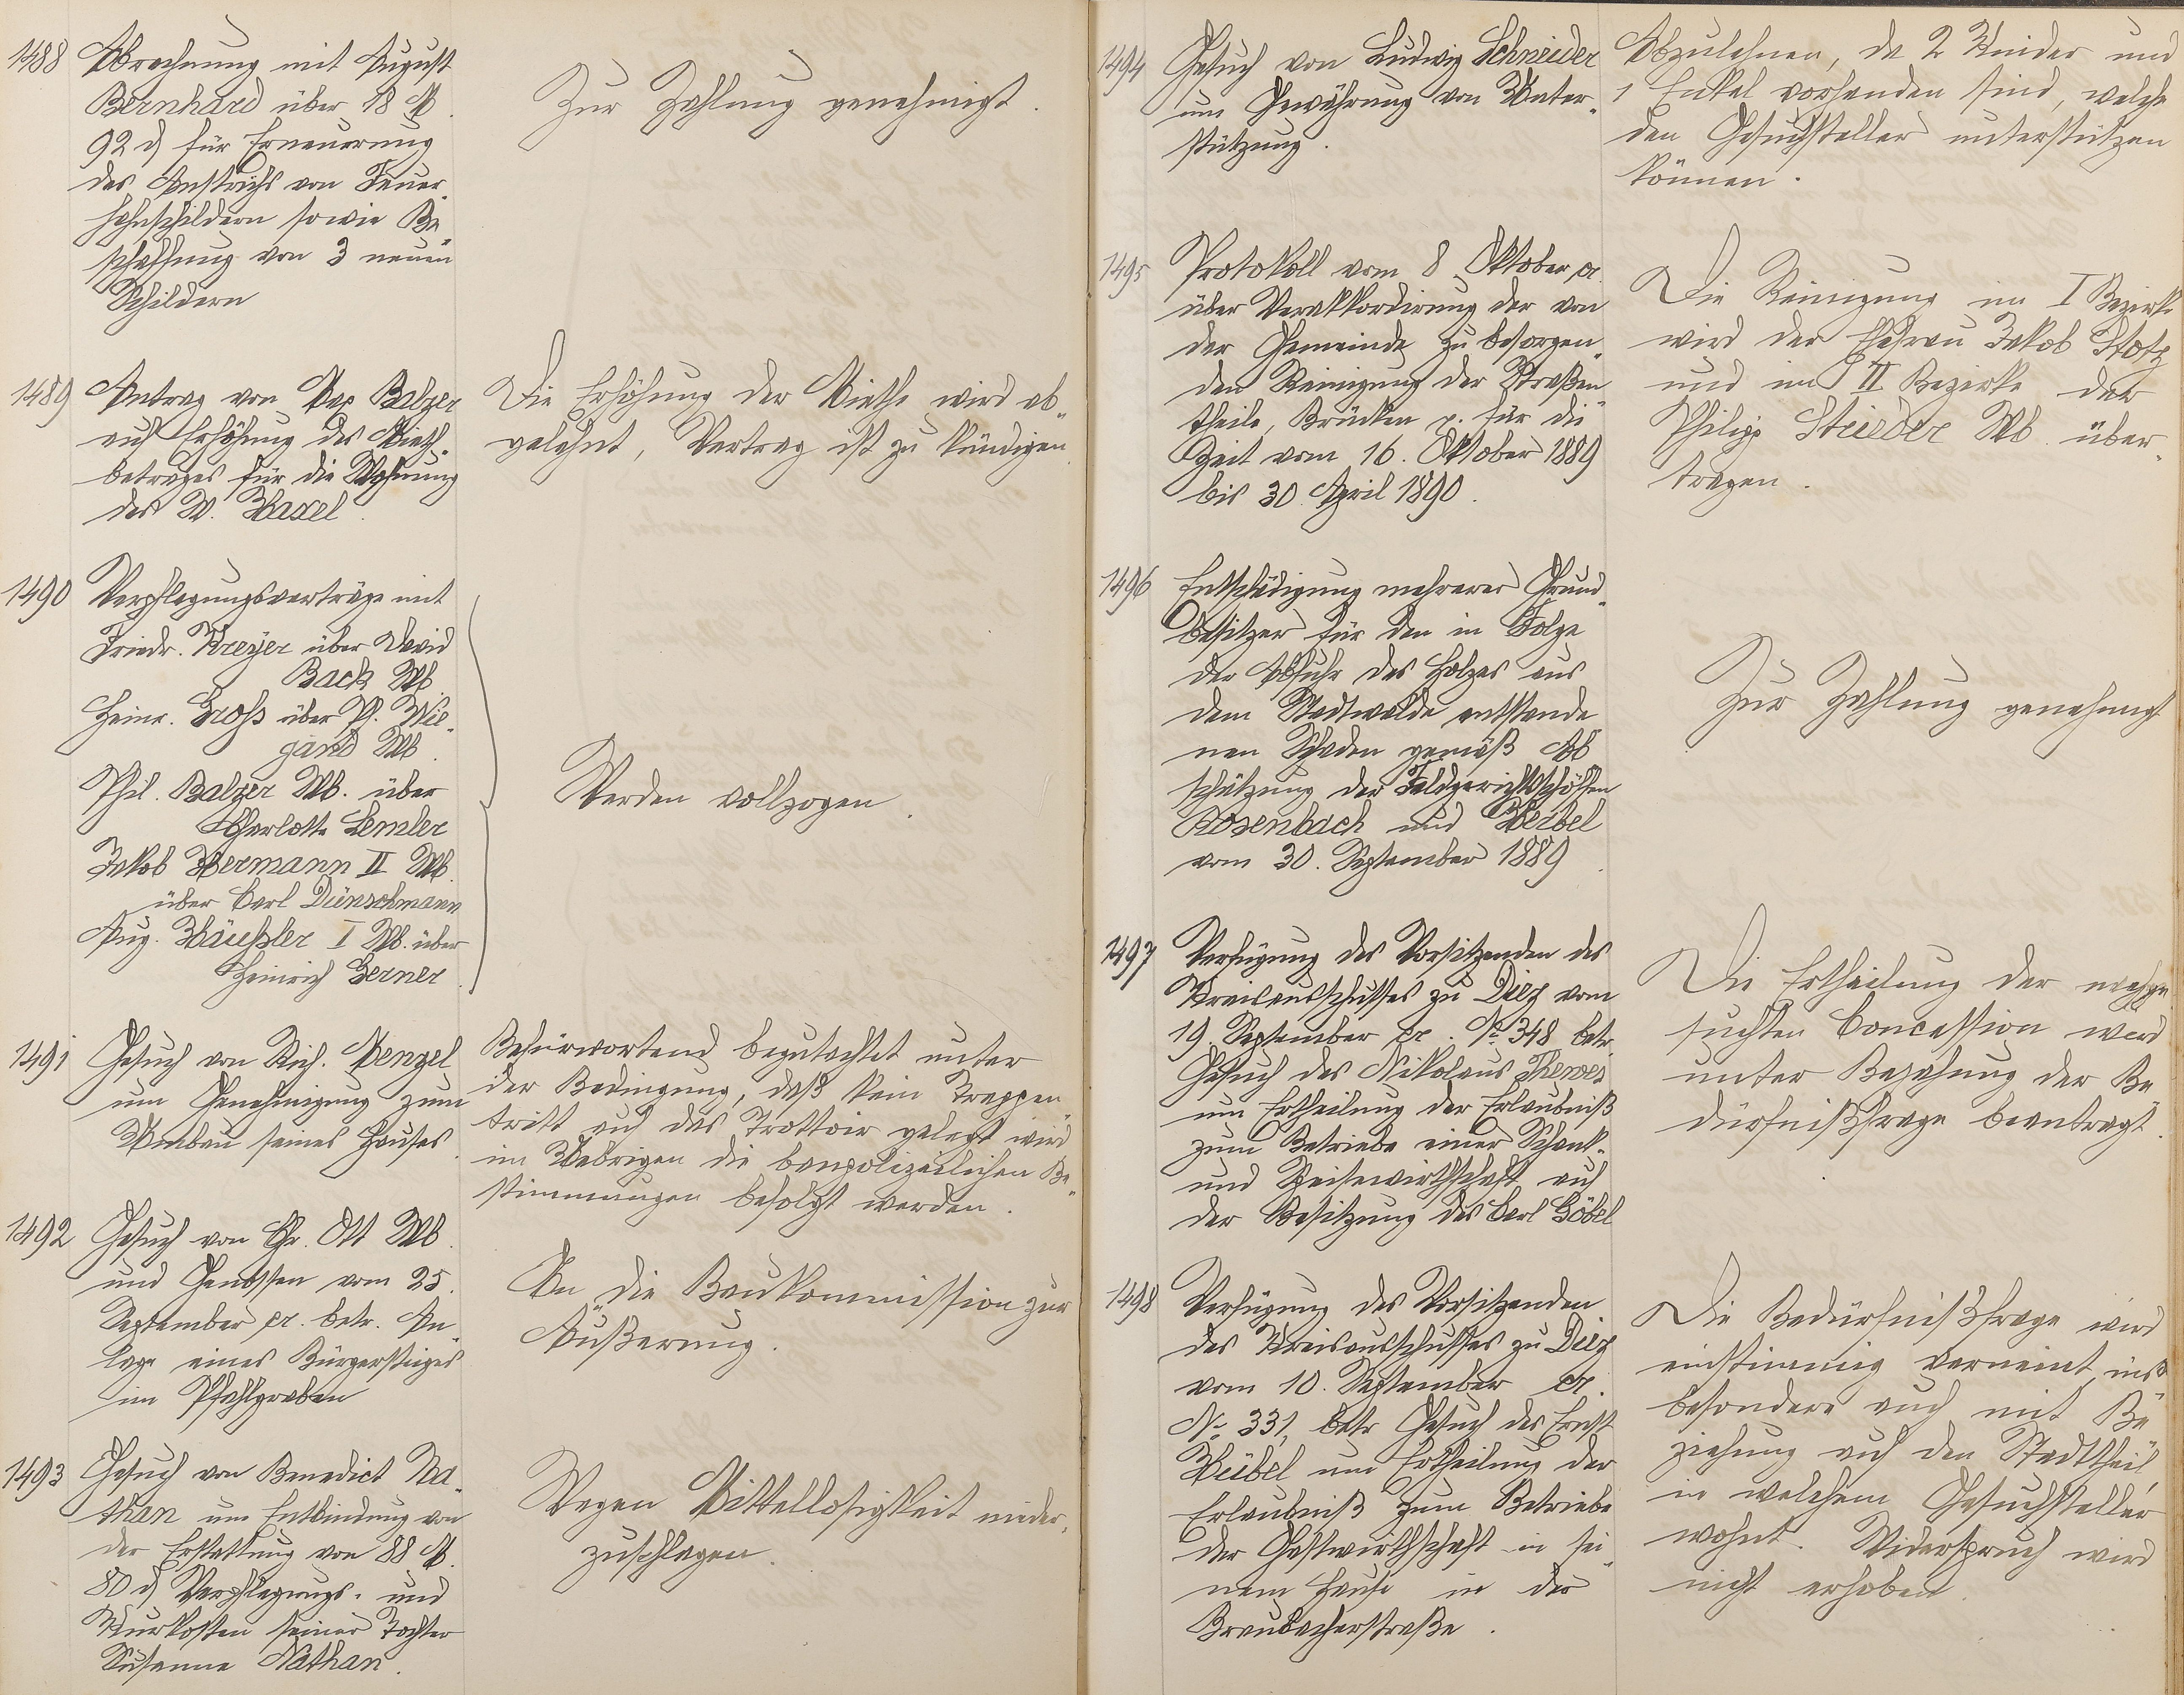 1488 Abrechnung mit August
Bernhard über 18 M
92 ₰ für Erneuerung
des Anstrichs von Feuer-
hahnschildern sowie Be-
schaffung von 3 neuen
Schildern
Zur Zahlung genehmigt.
1489 Antrag von Max Balzer
auf Erhöhung des Mieth-
betrages für die Wohnung
des W. Haxel
Die Erhöhung der Miethe wird ab-
gelehnt, Vertrag ist zu kündigen.
1490 Verpflegungsverträge mit
Friedr. Kreÿer über David
Back Wb
Heinr. Groß über Ph. Wie-
gand Wb.
Phil. Balzer Wb. über
Charlotte Lemler
Jakob Hermann II Wb.
über Carl Dünschmann
Aug. Häußler I Wb. über
Heinrich Gerner.
Werden vollzogen.
1491 Gesuch von Rich. Menzel
um Genehmigung zum
Umbau seines Hauses.
Befürwortend begutachtet unter
der Bedingung, daß kein Treppen-
tritt auf das Trottoir gelegt wird
im Uebrigen die baupolizeilichen Be-
stimmungen befolgt werden.
1492 Gesuch von Chr. Ott Wb.
und Genossen vom 25.
September cr. betr. An-
lage eines Bürgersteiges
im Pfahlgraben
An die Baukommission zur
Äußerung.
1493 Gesuch von Benedict Na-
than um Entbindung von
der Erstattung von 88 M.
80 ₰ Verpflegungs- und
Kurkosten seiner Tochter
Susanna Nathan.
Wegen Mittellosigkeit nieder-
zuschlagen.
1494 Gesuch von Ludwig Schneider
um Gewährung von Unter-
stützung.
Abzulehnen, da 2 Kinder und
1 Enkel vorhanden sind, welche
den Gesuchsteller unterstützen
können.
1495 Protokoll vom 8 Oktober cr.
über Verakkordirung der von
der Gemeinde zu besorgen-
den Reinigung der Straßen-
theile, Brücken p. für die
Zeit vom 16. Oktober 1889
bis 30. April 1890.
Die Reinigung im I Bezirke
wird der Ehefrau Jakob Stotz
und im II Bezirke der
Philipp Strieder Wb. über-
tragen.
1496 Entschädigung mehrerer Grund-
besitzer für den in Folge
der Abfuhr des Holzes aus
dem Stadtwalde entstande-
nen Schaden gemäß Ab-
schätzung der Feldgerichtsschöffen
Rosenbach und Herbel
vom 30. September 1889.
Zur Zahlung genehmigt
1497 Verfügung des Vorsitzenden des
Kreisausschusses zu Diez vom
19. September cr. No 348 betr.
Gesuch des Nikolaus Thewes
um Ertheilung der Erlaubniß
zum Betriebe einer Schank-
und Speisewirthschaft auf
der Besitzung des Carl Göbel
Die Ertheilung der nachge-
suchten Concession wird
unter Bejahung der Be-
dürfnißfrage beantragt.
1498 Verfügung des Vorsitzenden
des Kreisausschusses zu Diez
vom 10. September cr.
No 331, betr Gesuch des Ernst
Heibel um Ertheilung der
Erlaubniß zum Betriebe
der Gastwirthschaft in sei-
nem Hause in der
Braubacherstraße.
Die Bedürfnißfrage wird
einstimmig verneint, ins-
besondere auch mit Be-
ziehung auf den Stadttheil
in welchem Gesuchsteller
wohnt. Widerspruch wird
nicht erhoben.